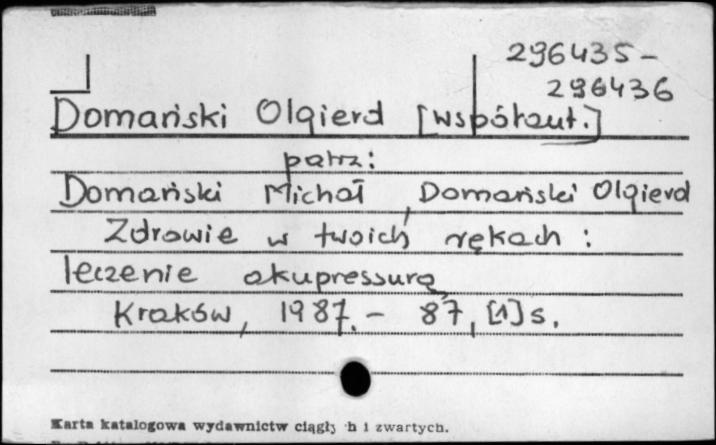 296435-
296436
Domański Olgierd [współaut.]
patrz:
Domański Michał, Domański Olgierd
Zdrowie w twoich rękach :
leczenie akupressurą
Kraków, 1987. - 87, [1] s.
Karta katalogowa wydawnictw ciągłych i zwartych.